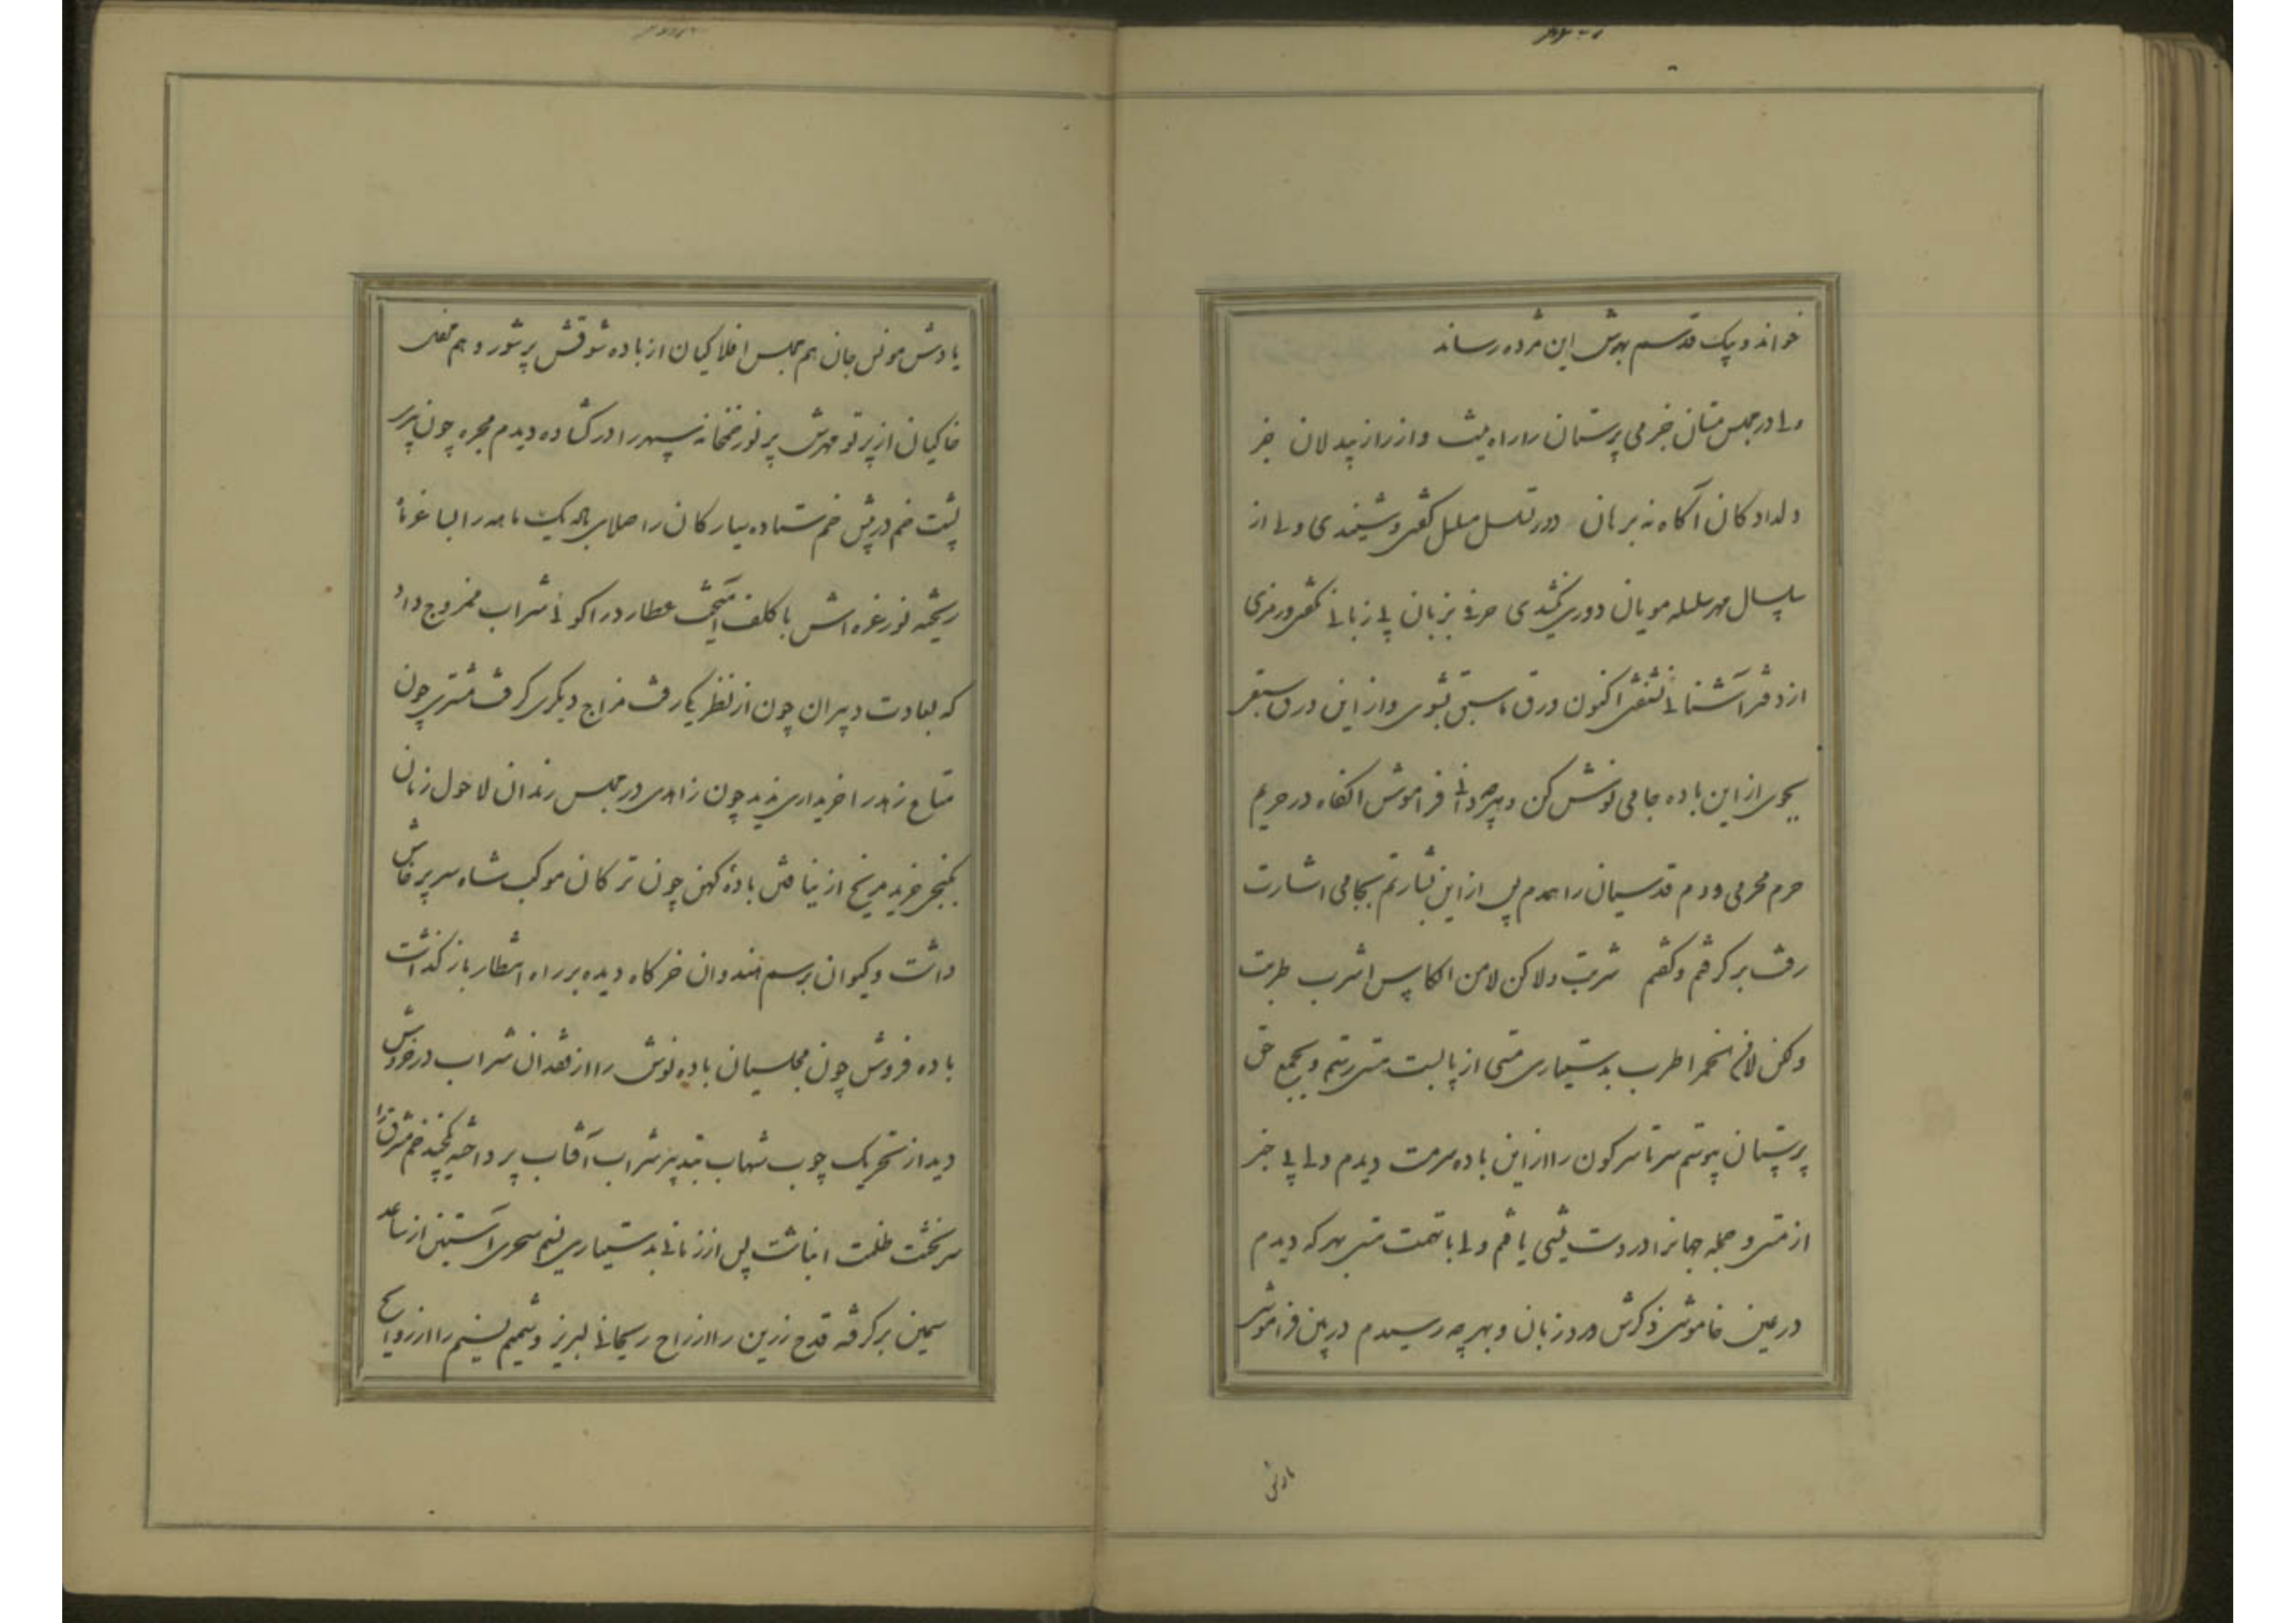 خواند و پیک قدسم بهوش این مژده رساند
ولی در مجلس مستان جز می پرستان را راه نیست و از راز بیدلان جز
دلدادگان آگاه نه برهان دور تسلسل گفتی و شنیدی ولی از
سلسال مهر سلسله مویان دوری نکشیدی حرفی بزبان بی زبانی نگفتی و رمزی
از دفتر آشنائی نشنفتی اکنون ورق ما سبق بشوی و از این ورق سبقی
بجوی از این باده جامی نوش کن و هرچه دانی فراموش آنگاه در حریم
حرم محرمی و دم قدسیان را همدم پس از این بشارتم بجامی اشارت
رفت برگرفتم و گفتم شربت ولاکن لا من الکاس اشرب طربت
ولکن لا فی الخمر اطرب بدستیاری مستی از پا بست هستی رستم و بجمع حق
پرستان پیوستم سرتاسر کون را از این باده سرمست دیدم ولی بی خبر
از مستی و جمله جهانرا در دست نیستی یافتم ولی با تهمت هستی بهر که دیدم
در عین خاموشی ذکرش ورد زبان و بهر چه رسیدم در بین فراموشی
یادش
یادش مونس جان هم مجلس افلاکیان از باده شوقش پرشور و هم محفل
خاکیان از پرتو مهرش پر نور خمخانه سپهر را در گشاده دیدم مجره چون پیر
پشت خم در پیش خم ستاده سیارگان را صلای باده یک ماهه را ایاغ
ریخته نور غره اش با کلف آمیخت عطارد را گوئی شراب ممزوج داد
که بعادت دبیران چون از نظر یکا رفت مزاج دیگری گرفت مشتری چون
متاع زهد را خریداری ندید چون زاهدی در مجلس رندان لاحول زنان
بکنجی خزید مریخ از نیافتن بادهٔ کهن چون ترکان موکب شاه سر پرخاش
داشت و کیوان برسم هندوان خرگاه دیده بر راه انتظار باز گذاشت
باده فروش چون مجلسیان باده نوش را از فقدان شراب در خروش
دید از تحریک چوب شهاب شراب آفتاب پرداخته خم مشرق را
سر بخشت ظلمت انباشت پس از زمانی بدستیاری نسیم سحری آستین از ساعد
سیمین برگرفته قدح زرین را از راح ریحانی لبریز و شمیم نسیم را از روایح